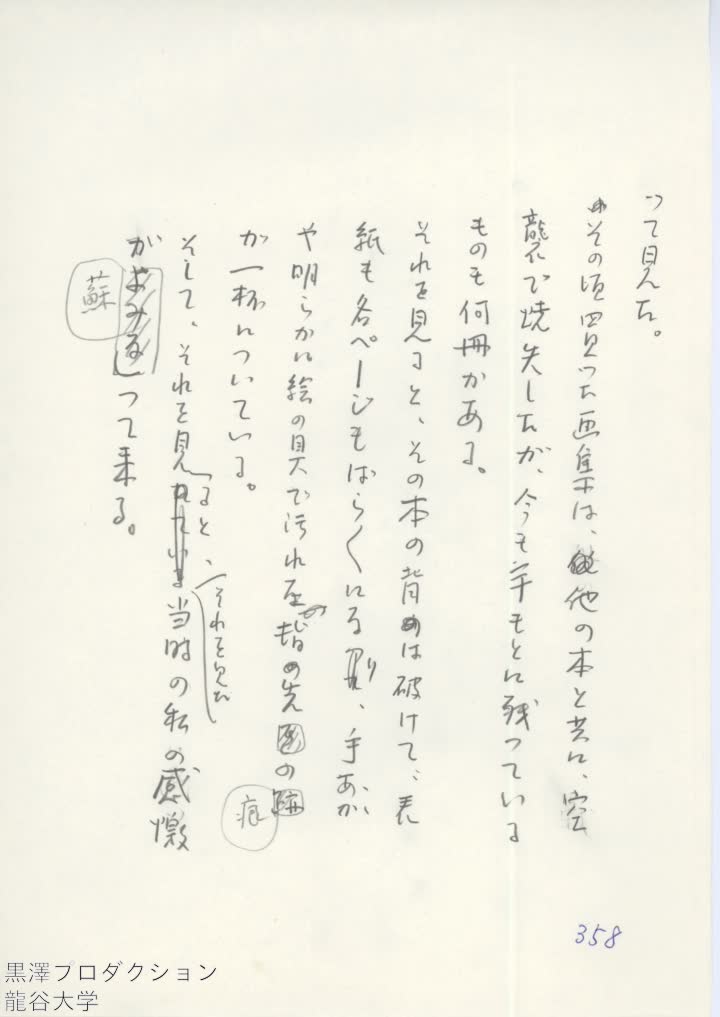 って見た。
その頃買った画集は、他の本と共に、空
襲で焼失したが、今も手もとに残っている
ものも何冊かある。
それを見ると、その本の背は破けて、表
紙も各ページもばら〱になり、手あか
や明らかに絵の具で汚れた指の先の
痕
が一杯についている。
そして、それを見ると、
それを見た
当時の私の感激
が
蘇
よみがえ
って来る。
358
黒澤プロダクション
龍谷大学